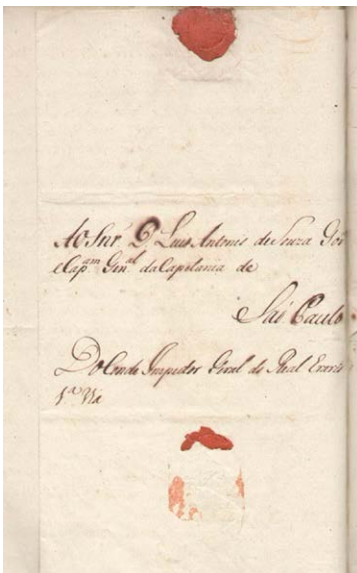 Ao Snr̃ D Luis Antonio de Souza Gov
e Cap.am Gen.al da Capitania de
São Paulo
Do Conde Inspector Geral do Real Erario
1.a Via